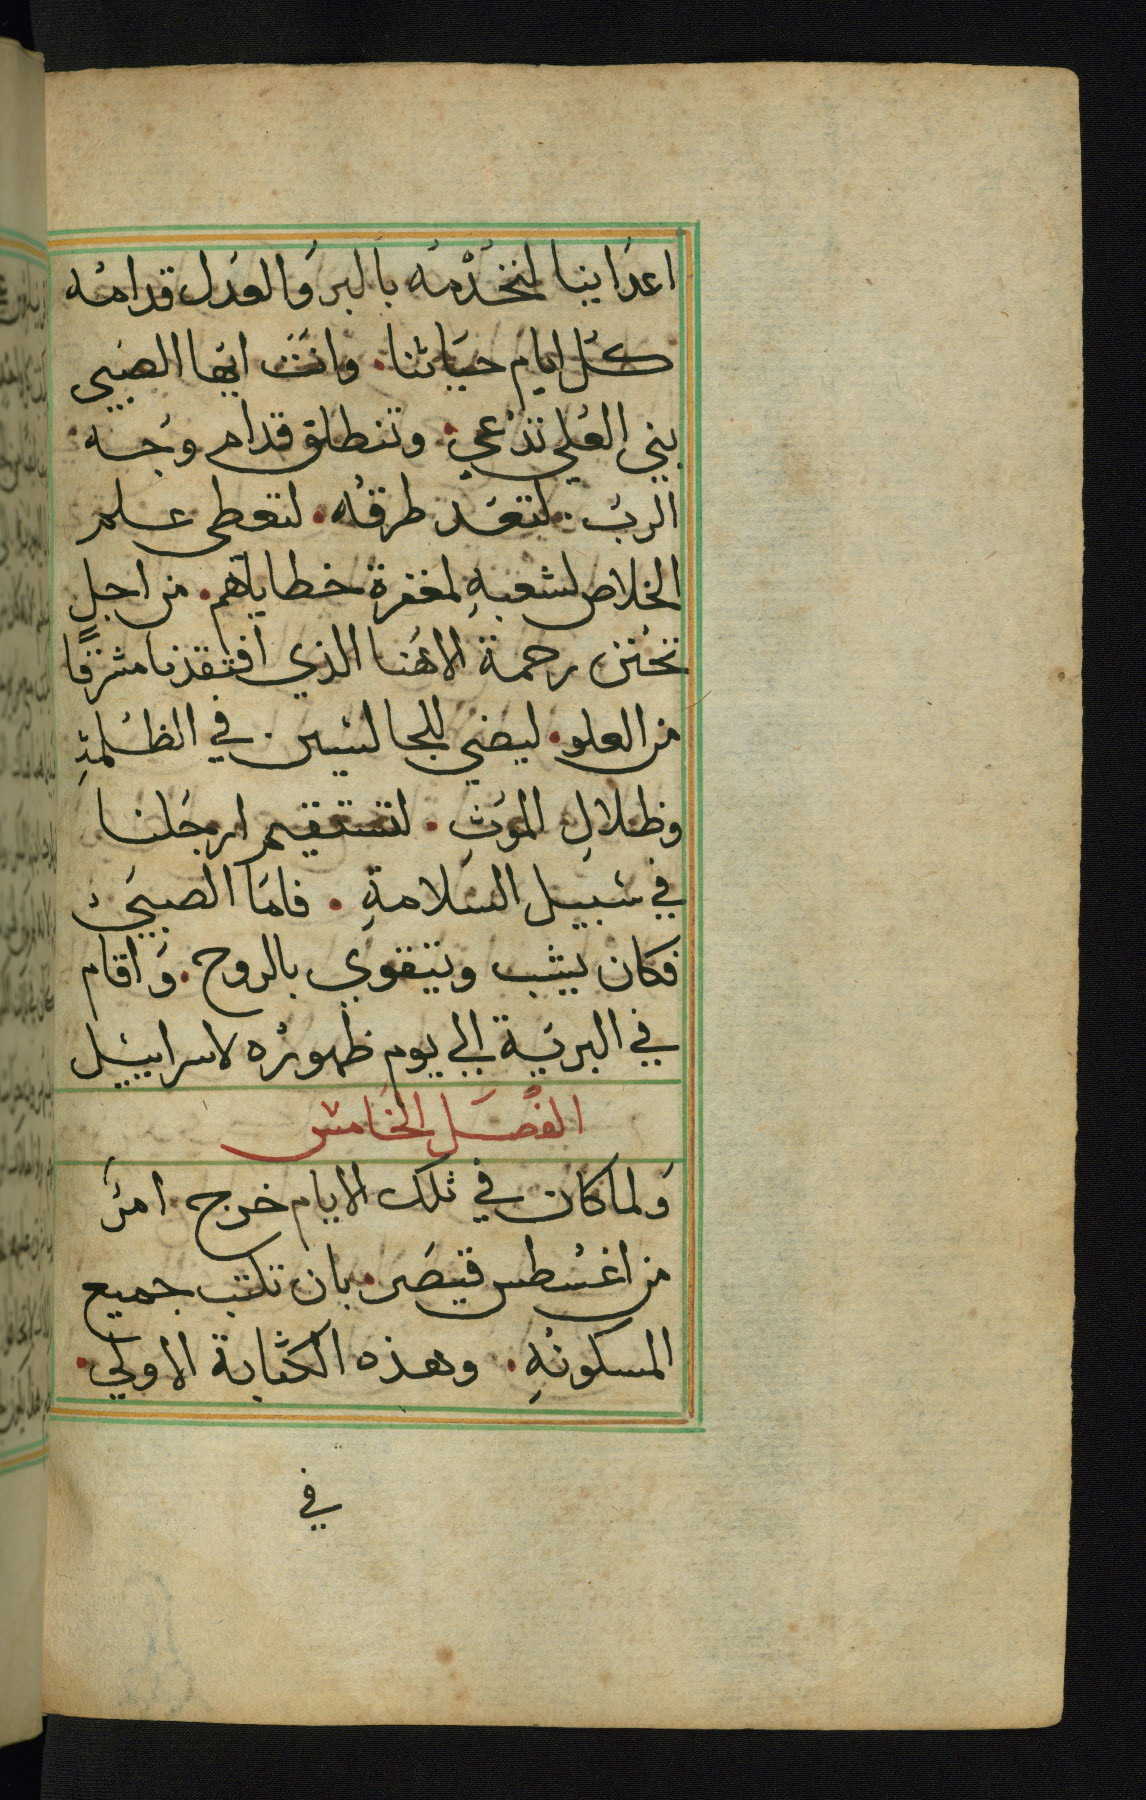 اعدَاينا لنخدُمهُ بالبر وَالعَدل قدامُه
كل ايام حيَاتنا. وانتَ ايهَا الصَبي
نبي العُلي تدْعي. وتنطلق قدام وجه
الربَ. لتعَد طرقهُ. لتعطي علم
الخلاص لشعبهِ لمغفرة خطاياهم. من اجل
تحُنن رحمة الاهُنا الذي افتقدنا مشرقًا
من العلو. ليضي للجالسَين. في الظلمةِ
وظلالِ الموَتِ. لتستقيم ارجُلنا
في سَبيل السَلامةِ. فامَا الصبيَ
فكان يشب ويتقوي بالروح. وَاقام
في البريَة الي يوم ظهورُه لاسراييل
الفصَل الخَامس
وَلما كان في تلك الايام خرج امرَ
من اغسُطس قيصَر. بان تكتب جميع
المسكونهِ. وهذه الكتابة الاولي.
في